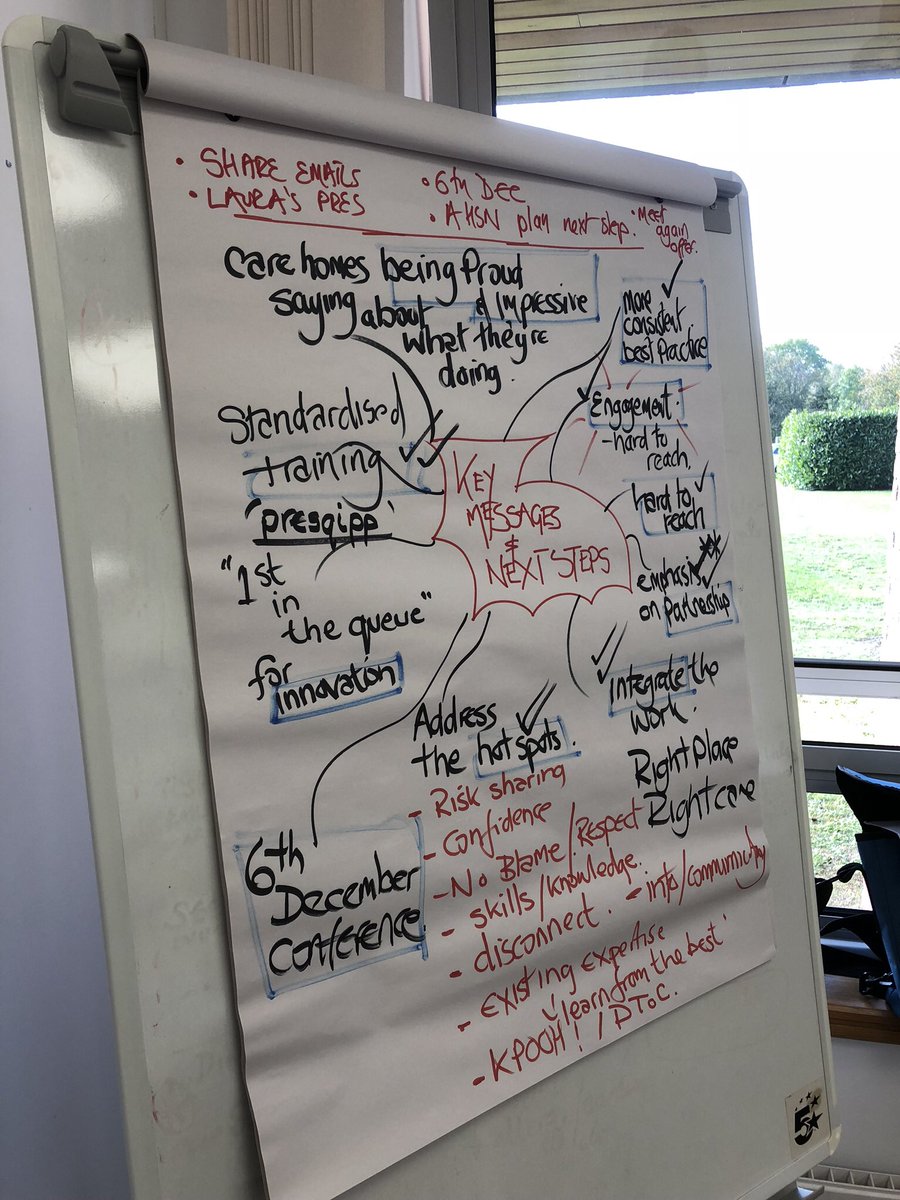 • SHARE EMAILS
• LAURA'S PRES
• 6TH DEC
• AHSN plan next step.
• Meet
again
offer.
Care homes being Proud
saying about & Impressive
what they're
doing.
More
consistent
best Practice
Engagement.
- hard to
reach.
Standardised
training
'presqipp'
KEY
MESSAGES
&
NEXT STEPS
hard to
reach
emphasis
on Partnership
"1st
in
the queue"
for
innovation
Integrate the
work.
Right Place
Right care
Address
the hot spots.
- Risk sharing
- Confidence
- No Blame/Respect
- skills/knowledge.
- disconnect. - info/community
- existing expertise
'learn from the best'
- KPOOH! / DToC.
6th
December
Conference
5